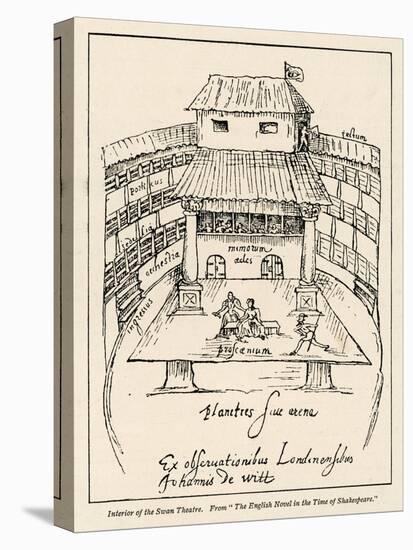 tectum
porticus
sedilia
orchestra
mimorum
ædes
ingressus
proscænium
planities siue arena
Ex obseruationibus Londinensibus
Johannis de witt
Interior of the Swan Theatre. From "The English Novel in the Time of Shakespeare."